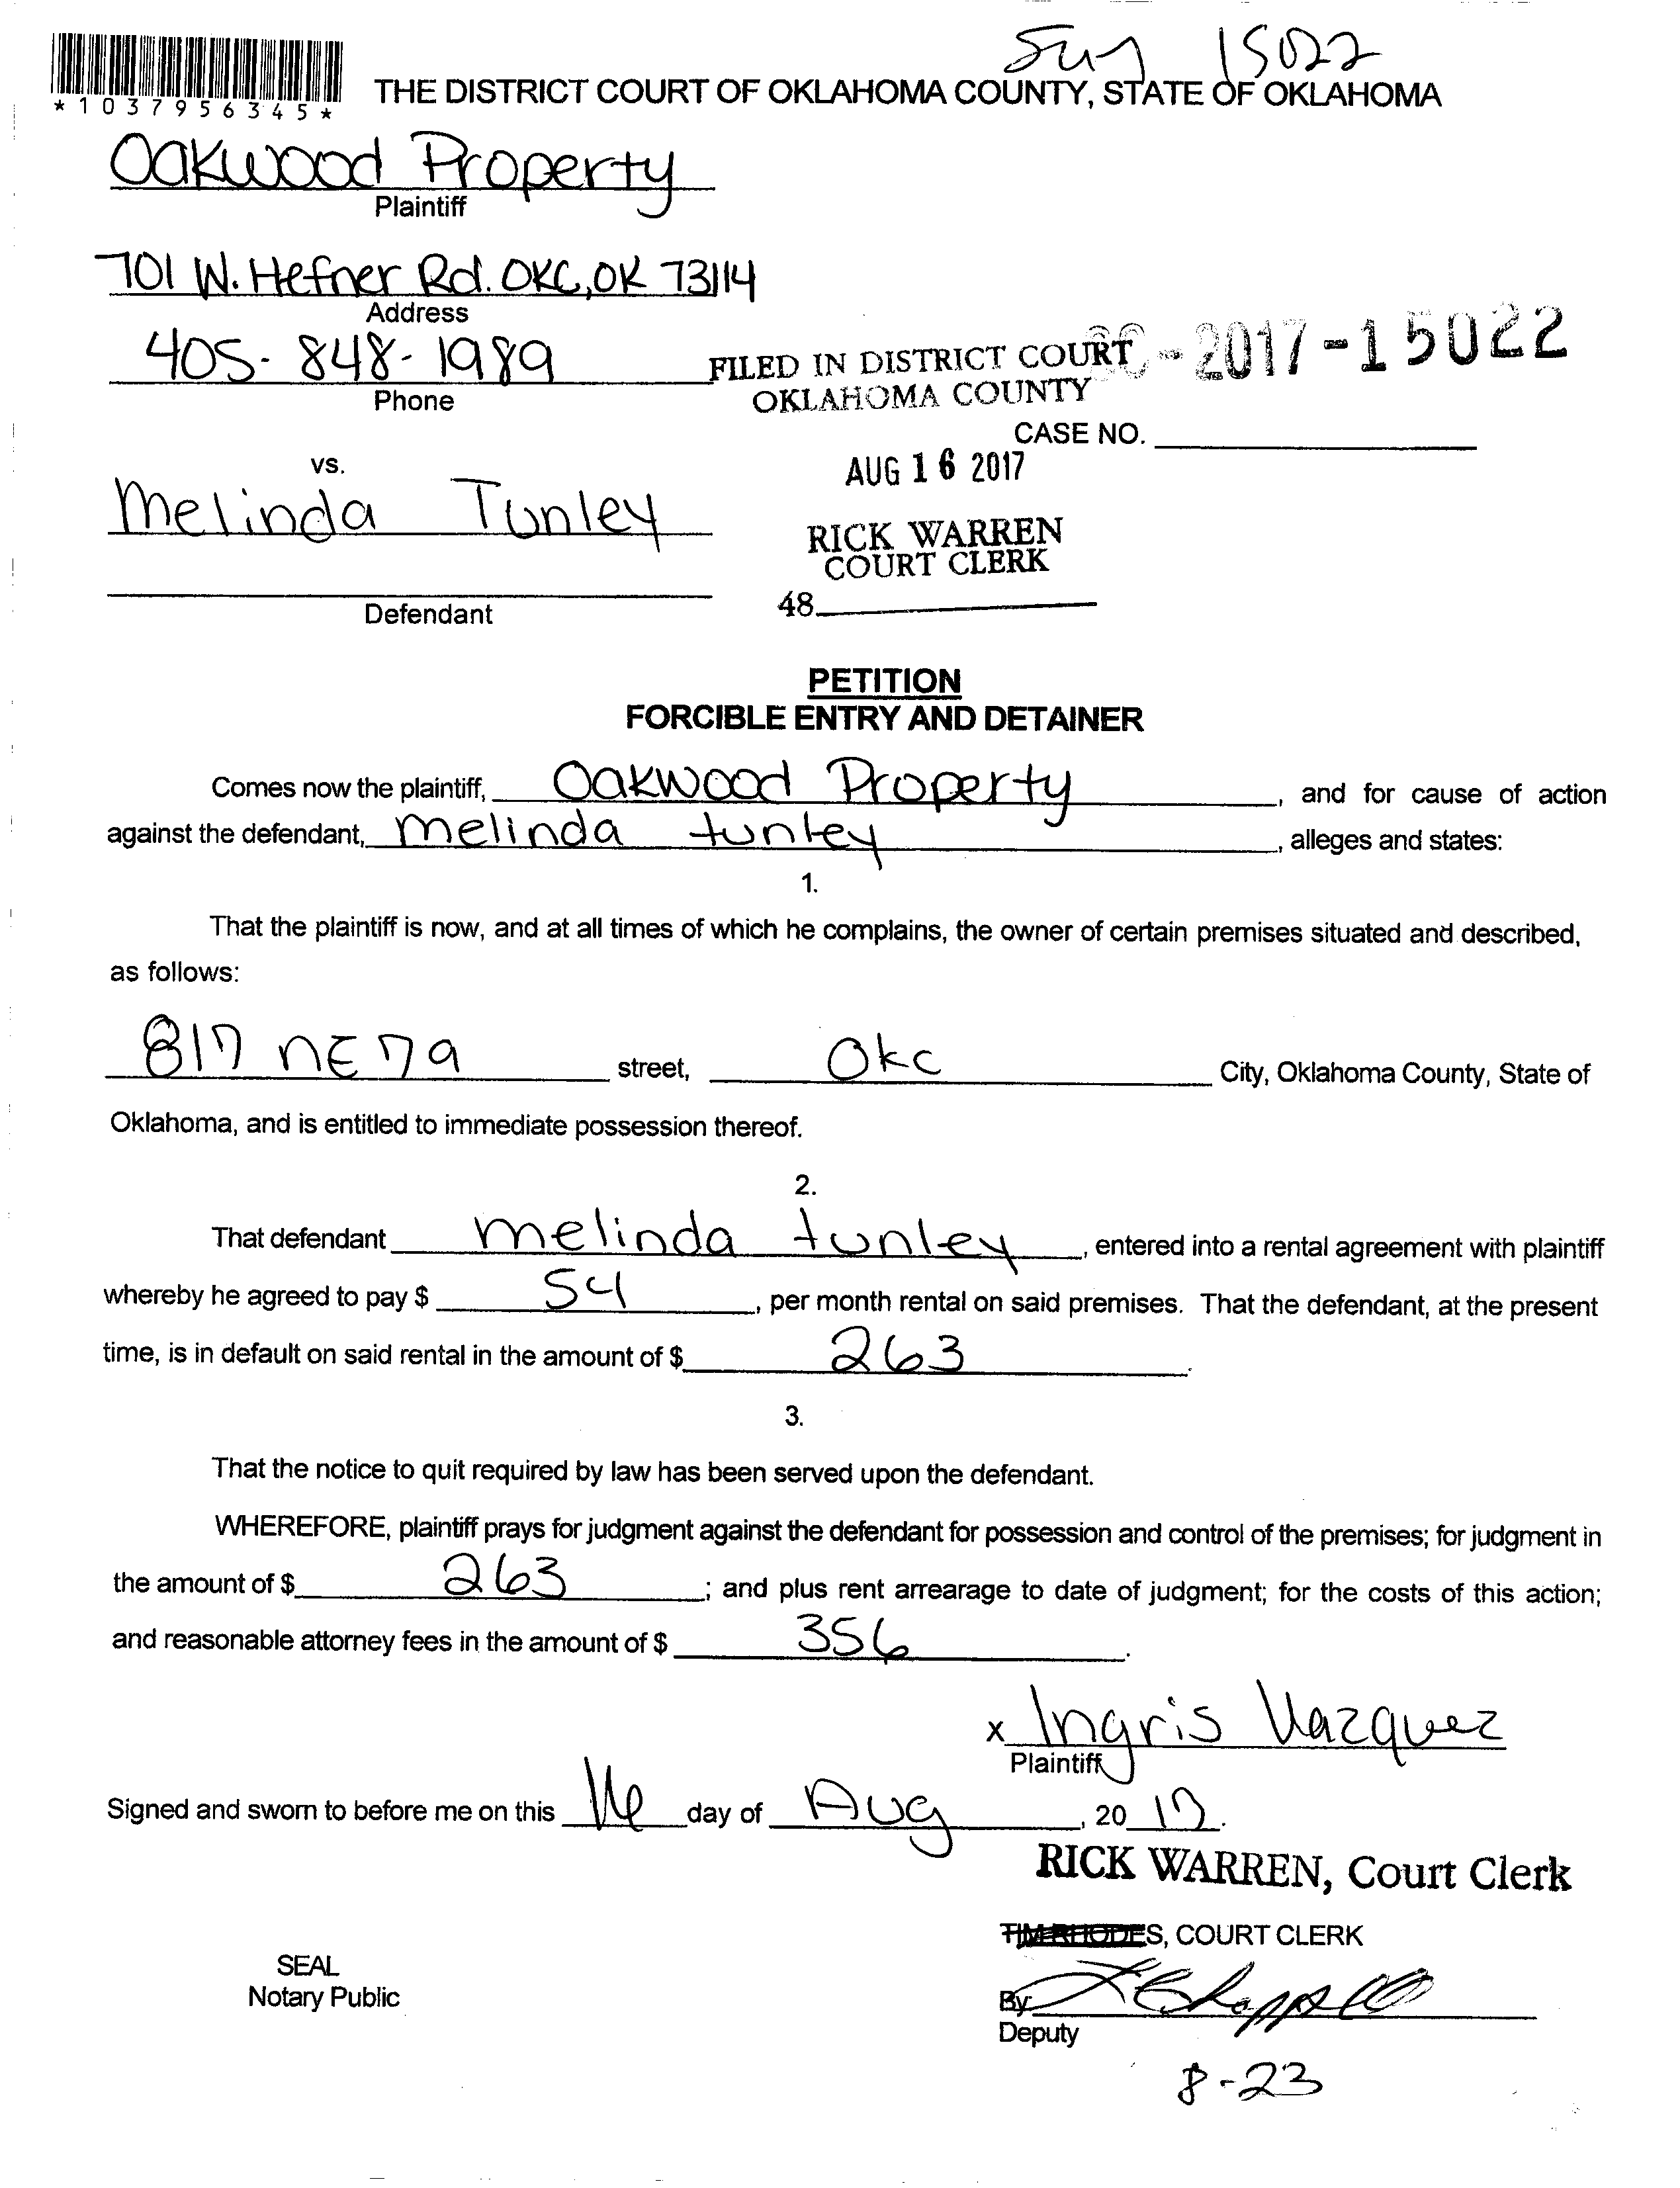 15022
THE DISTRICT COURT OF OKLAHOMA COUNTY, STATE OF OKLAHOMA
*1037956345*
Oakwood Property
Plaintiff
701 W. Hefner Rd. OKC, OK 73114
Address
405-848-1989
Phone
FILED IN DISTRICT COURT
OKLAHOMA COUNTY
-2017-15022
CASE NO.
AUG 16 2017
vs.
Melinda Tunley
RICK WARREN
COURT CLERK
48
Defendant
PETITION
FORCIBLE ENTRY AND DETAINER
Comes now the plaintiff, Oakwood Property, and for cause of action
against the defendant, melinda tunley, alleges and states:
1.
That the plaintiff is now, and at all times of which he complains, the owner of certain premises situated and described,
as follows:
817 NE 79 street, Okc City, Oklahoma County, State of
Oklahoma, and is entitled to immediate possession thereof.
2.
That defendant melinda tunley, entered into a rental agreement with plaintiff
whereby he agreed to pay $ 54, per month rental on said premises. That the defendant, at the present
time, is in default on said rental in the amount of $ 263.
3.
That the notice to quit required by law has been served upon the defendant.
WHEREFORE, plaintiff prays for judgment against the defendant for possession and control of the premises; for judgment in
the amount of $ 263; and plus rent arrearage to date of judgment; for the costs of this action;
and reasonable attorney fees in the amount of $ 356.
x Ingris Vazquez
Plaintiff
Signed and sworn to before me on this 16 day of Aug, 20 17.
RICK WARREN, Court Clerk
TIM RHODES, COURT CLERK
SEAL
Notary Public
By
Deputy
8-23